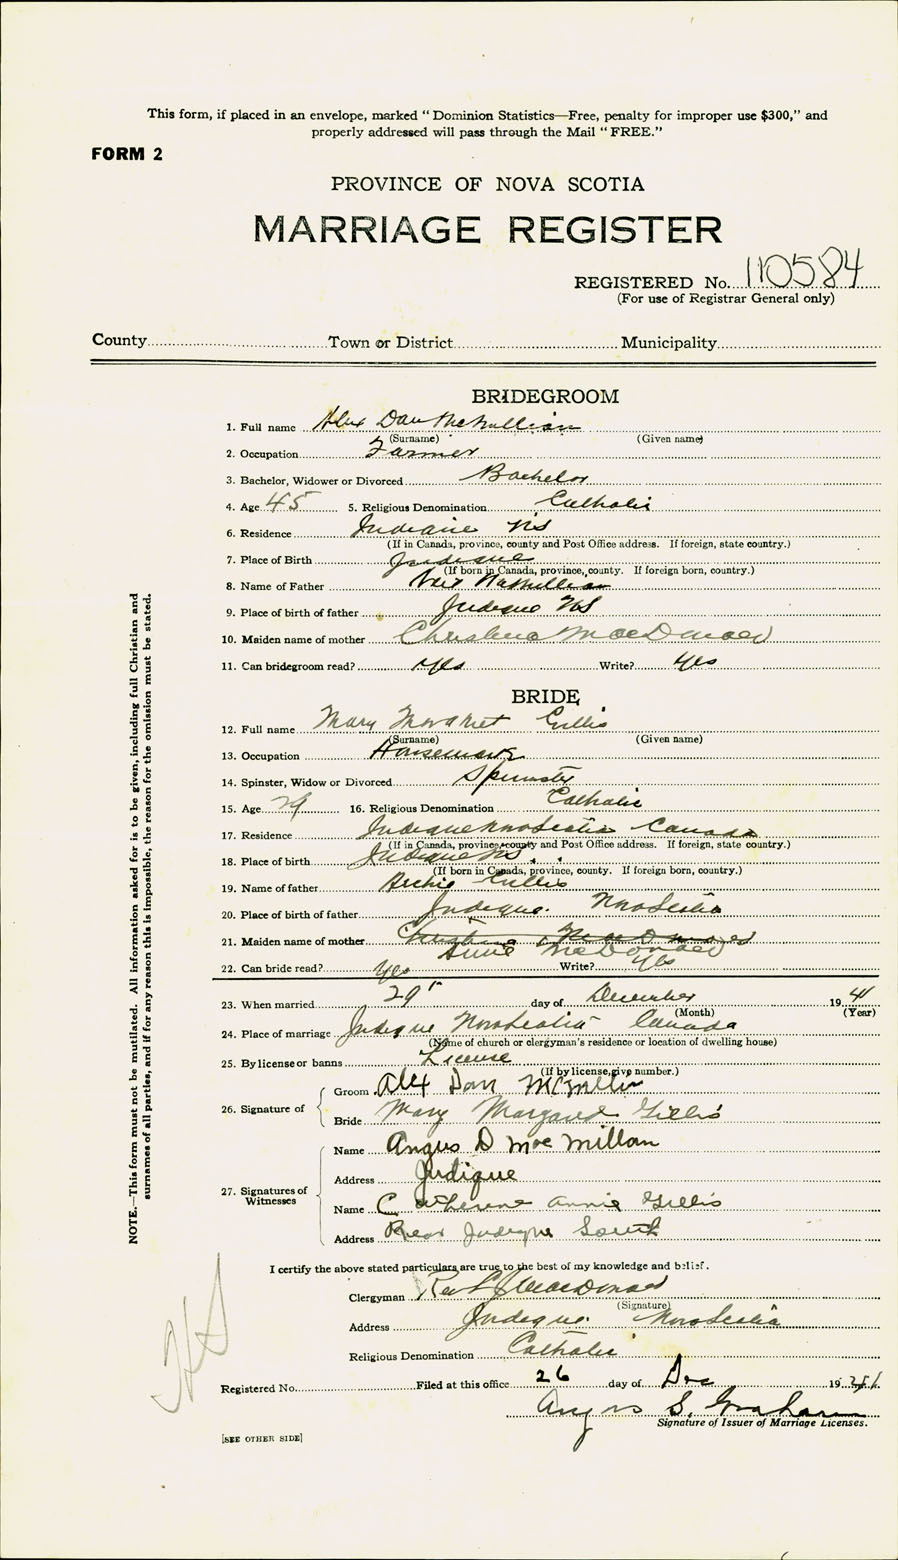 This form, if placed in an envelope, marked "Dominion Statistics—Free, penalty for improper use $300," and
properly addressed will pass through the Mail "FREE."
FORM 2
PROVINCE OF NOVA SCOTIA
MARRIAGE REGISTER
REGISTERED No. 110584
(For use of Registrar General only)
County Town or District Municipality
BRIDEGROOM
1. Full name Alex Dan McMillian
(Surname) (Given name)
2. Occupation Farmer
3. Bachelor, Widower or Divorced Bachelor
4. Age 45 5. Religious Denomination Catholic
6. Residence Judique NS
(If in Canada, province, county and Post Office address. If foreign, state country.)
7. Place of Birth Judique
(If born in Canada, province, county. If foreign born, country.)
8. Name of Father
9. Place of birth of father Judique NS
10. Maiden name of mother Christena MacDonald
11. Can bridegroom read? Yes Write? Yes
BRIDE
12. Full name Mary Margret Gillis
(Surname) (Given name)
13. Occupation Housework
14. Spinster, Widow or Divorced Spinster
15. Age 29 16. Religious Denomination Catholic
17. Residence Judique Nova Scotia Canada
(If in Canada, province, county and Post Office address. If foreign, state country.)
18. Place of birth Judique NS.
(If born in Canada, province, county. If foreign born, country.)
19. Name of father Archie Gillis
20. Place of birth of father Judique. Nova Scotia
21. Maiden name of mother Christena MacDonald
Annie McDonald
22. Can bride read? Yes Write? Yes
23. When married 29 day of December 1941
(Month) (Year)
24. Place of marriage Judique Nova Scotia Canada
(Name of church or clergyman's residence or location of dwelling house)
25. By license or banns License
(If by license, give number.)
26. Signature of
Groom Alex Dan McMillan
Bride Mary Margaret Gillis
27. Signatures of Witnesses
Name Angus D MacMillan
Address Judique
Name Catherine Annie Gillis
Address Rear Judique South
I certify the above stated particulars are true to the best of my knowledge and belief.
Clergyman Rev MacDonald
(Signature)
Address Judique. Nova Scotia
Religious Denomination Catholic
Registered No. Filed at this office 26 day of Dec 19
Angus S. Graham
Signature of Issuer of Marriage Licenses.
[SEE OTHER SIDE]
NOTE.—This form must not be mutilated. All information asked for is to be given, including full Christian and
surnames of all parties, and if for any reason this is impossible, the reason for the omission must be stated.